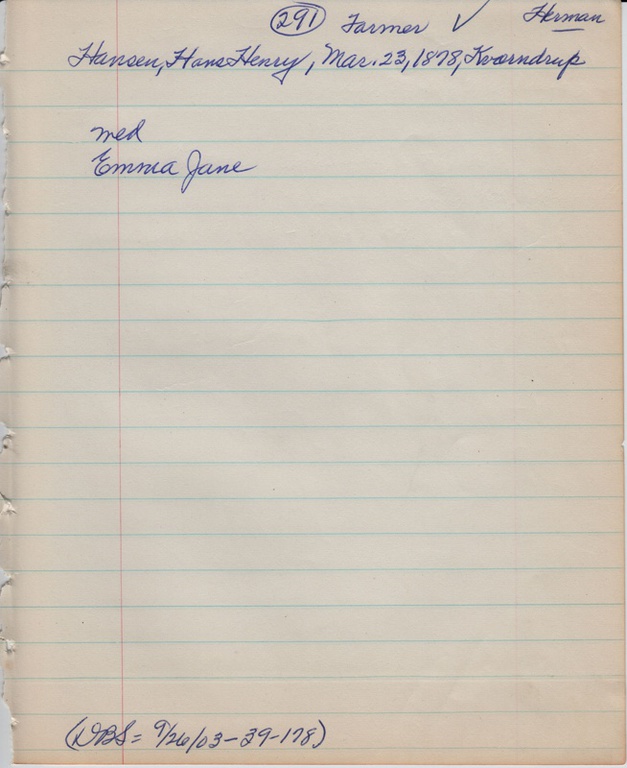 291 Farmer ✓ Herman
Hansen, Hans Henry, Mar. 23, 1878, Kværndrup
med
Emma Jane
(DBS = 9/26/03-39-178)